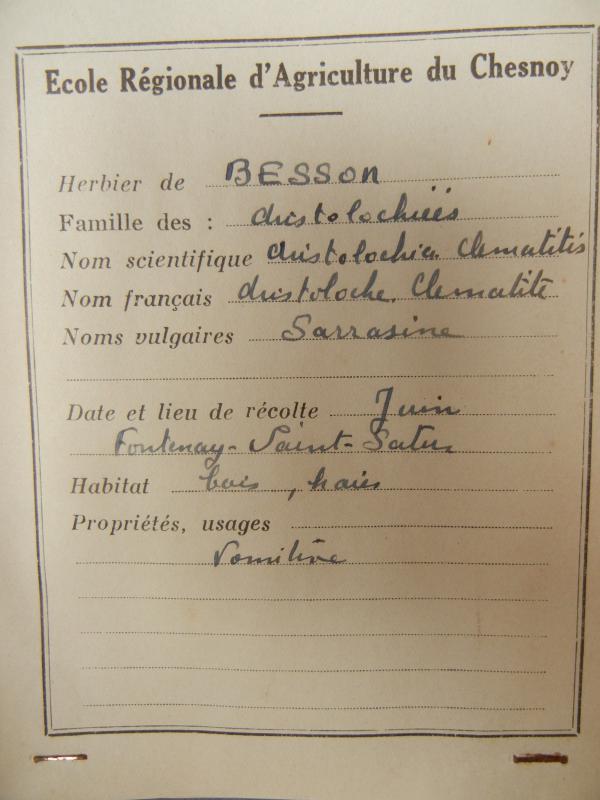 Ecole Régionale d'Agriculture du Chesnoy
Herbier de BESSON
Famille des : Aristolochiées
Nom scientifique Aristolochia Clematitis
Nom français Aristoloche Clematite
Noms vulgaires Sarrasine
Date et lieu de récolte Juin
Fontenay-Saint-Satur
Habitat bois, haies
Propriétés, usages
Vomitive